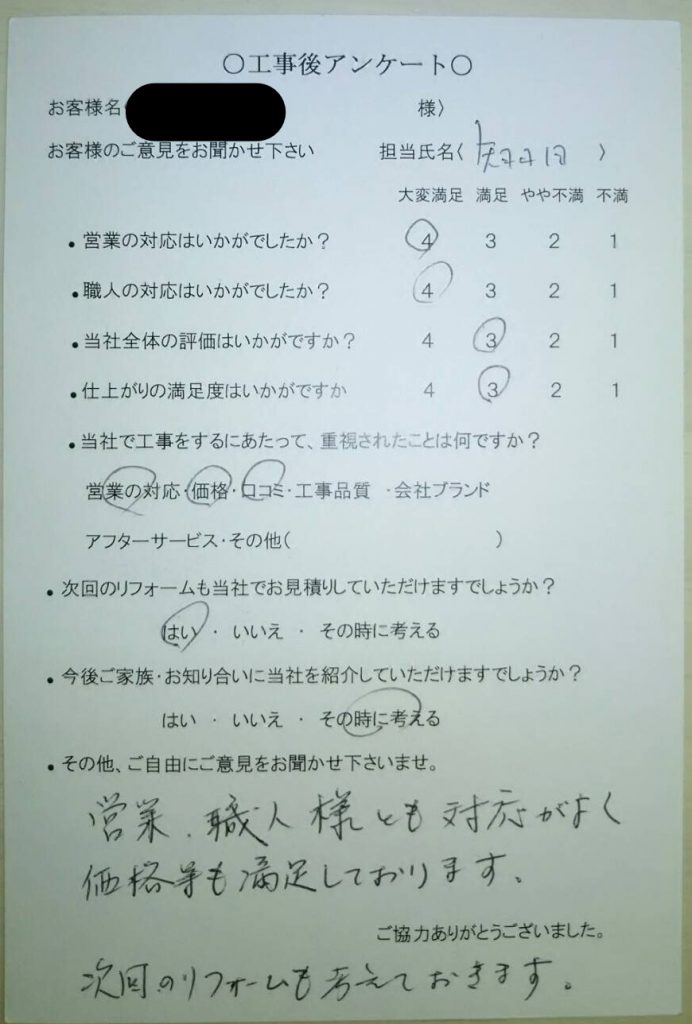 ○工事後アンケート○
お客様名 様〉
お客様のご意見をお聞かせ下さい 担当氏名〈 〉
大変満足 満足 やや不満 不満
・営業の対応はいかがでしたか？ 4 3 2 1
・職人の対応はいかがでしたか？ 4 3 2 1
・当社全体の評価はいかがですか？ 4 3 2 1
・仕上がりの満足度はいかがですか 4 3 2 1
・当社で工事をするにあたって、重視されたことは何ですか？
営業の対応・価格・口コミ・工事品質 ・会社ブランド
アフターサービス・その他( )
・次回のリフォームも当社でお見積りしていただけますでしょうか？
はい ・ いいえ ・ その時に考える
・今後ご家族・お知り合いに当社を紹介していただけますでしょうか？
はい ・ いいえ ・ その時に考える
・その他、ご自由にご意見をお聞かせ下さいませ。
営業、職人様とも対応がよく
価格等も満足しております、
ご協力ありがとうございました。
次回のリフォームも考えておきます。